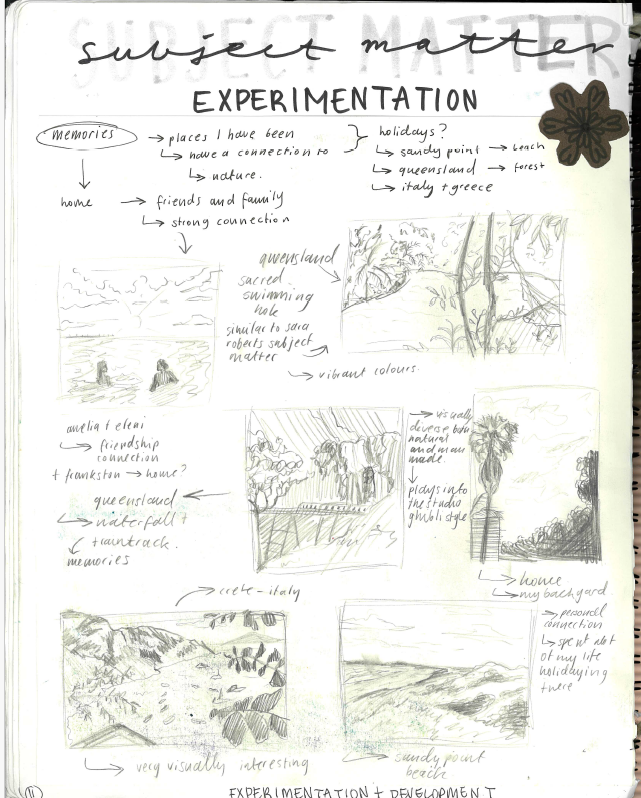 SUBJECT MATTER
subject matter
EXPERIMENTATION
memories
→ places I have been
↳ have a connection to
↳ nature.
holidays?
↳ sandy point → beach
↳ queensland → forest
↳ italy + greece
home → friends and family
↳ strong connection
queensland
sacred
swimming
hole
similar to sara
roberts subject
matter
↳ vibrant colours.
amelia + eleni
↳ friendship
connection
+ frankston → home?
queensland
↳ waterfall +
traintrack.
memories
→ visually
diverse both
natural
and man
made.
plays into
the studio
ghibli style
↳ home
↳ my backyard
→ crete - italy
→ personal
connection
↳ spent alot
of my life
holidaying
there
↳ very visually interesting
↳ sandy point
beach
11
EXPERIMENTATION + DEVELOPMENT